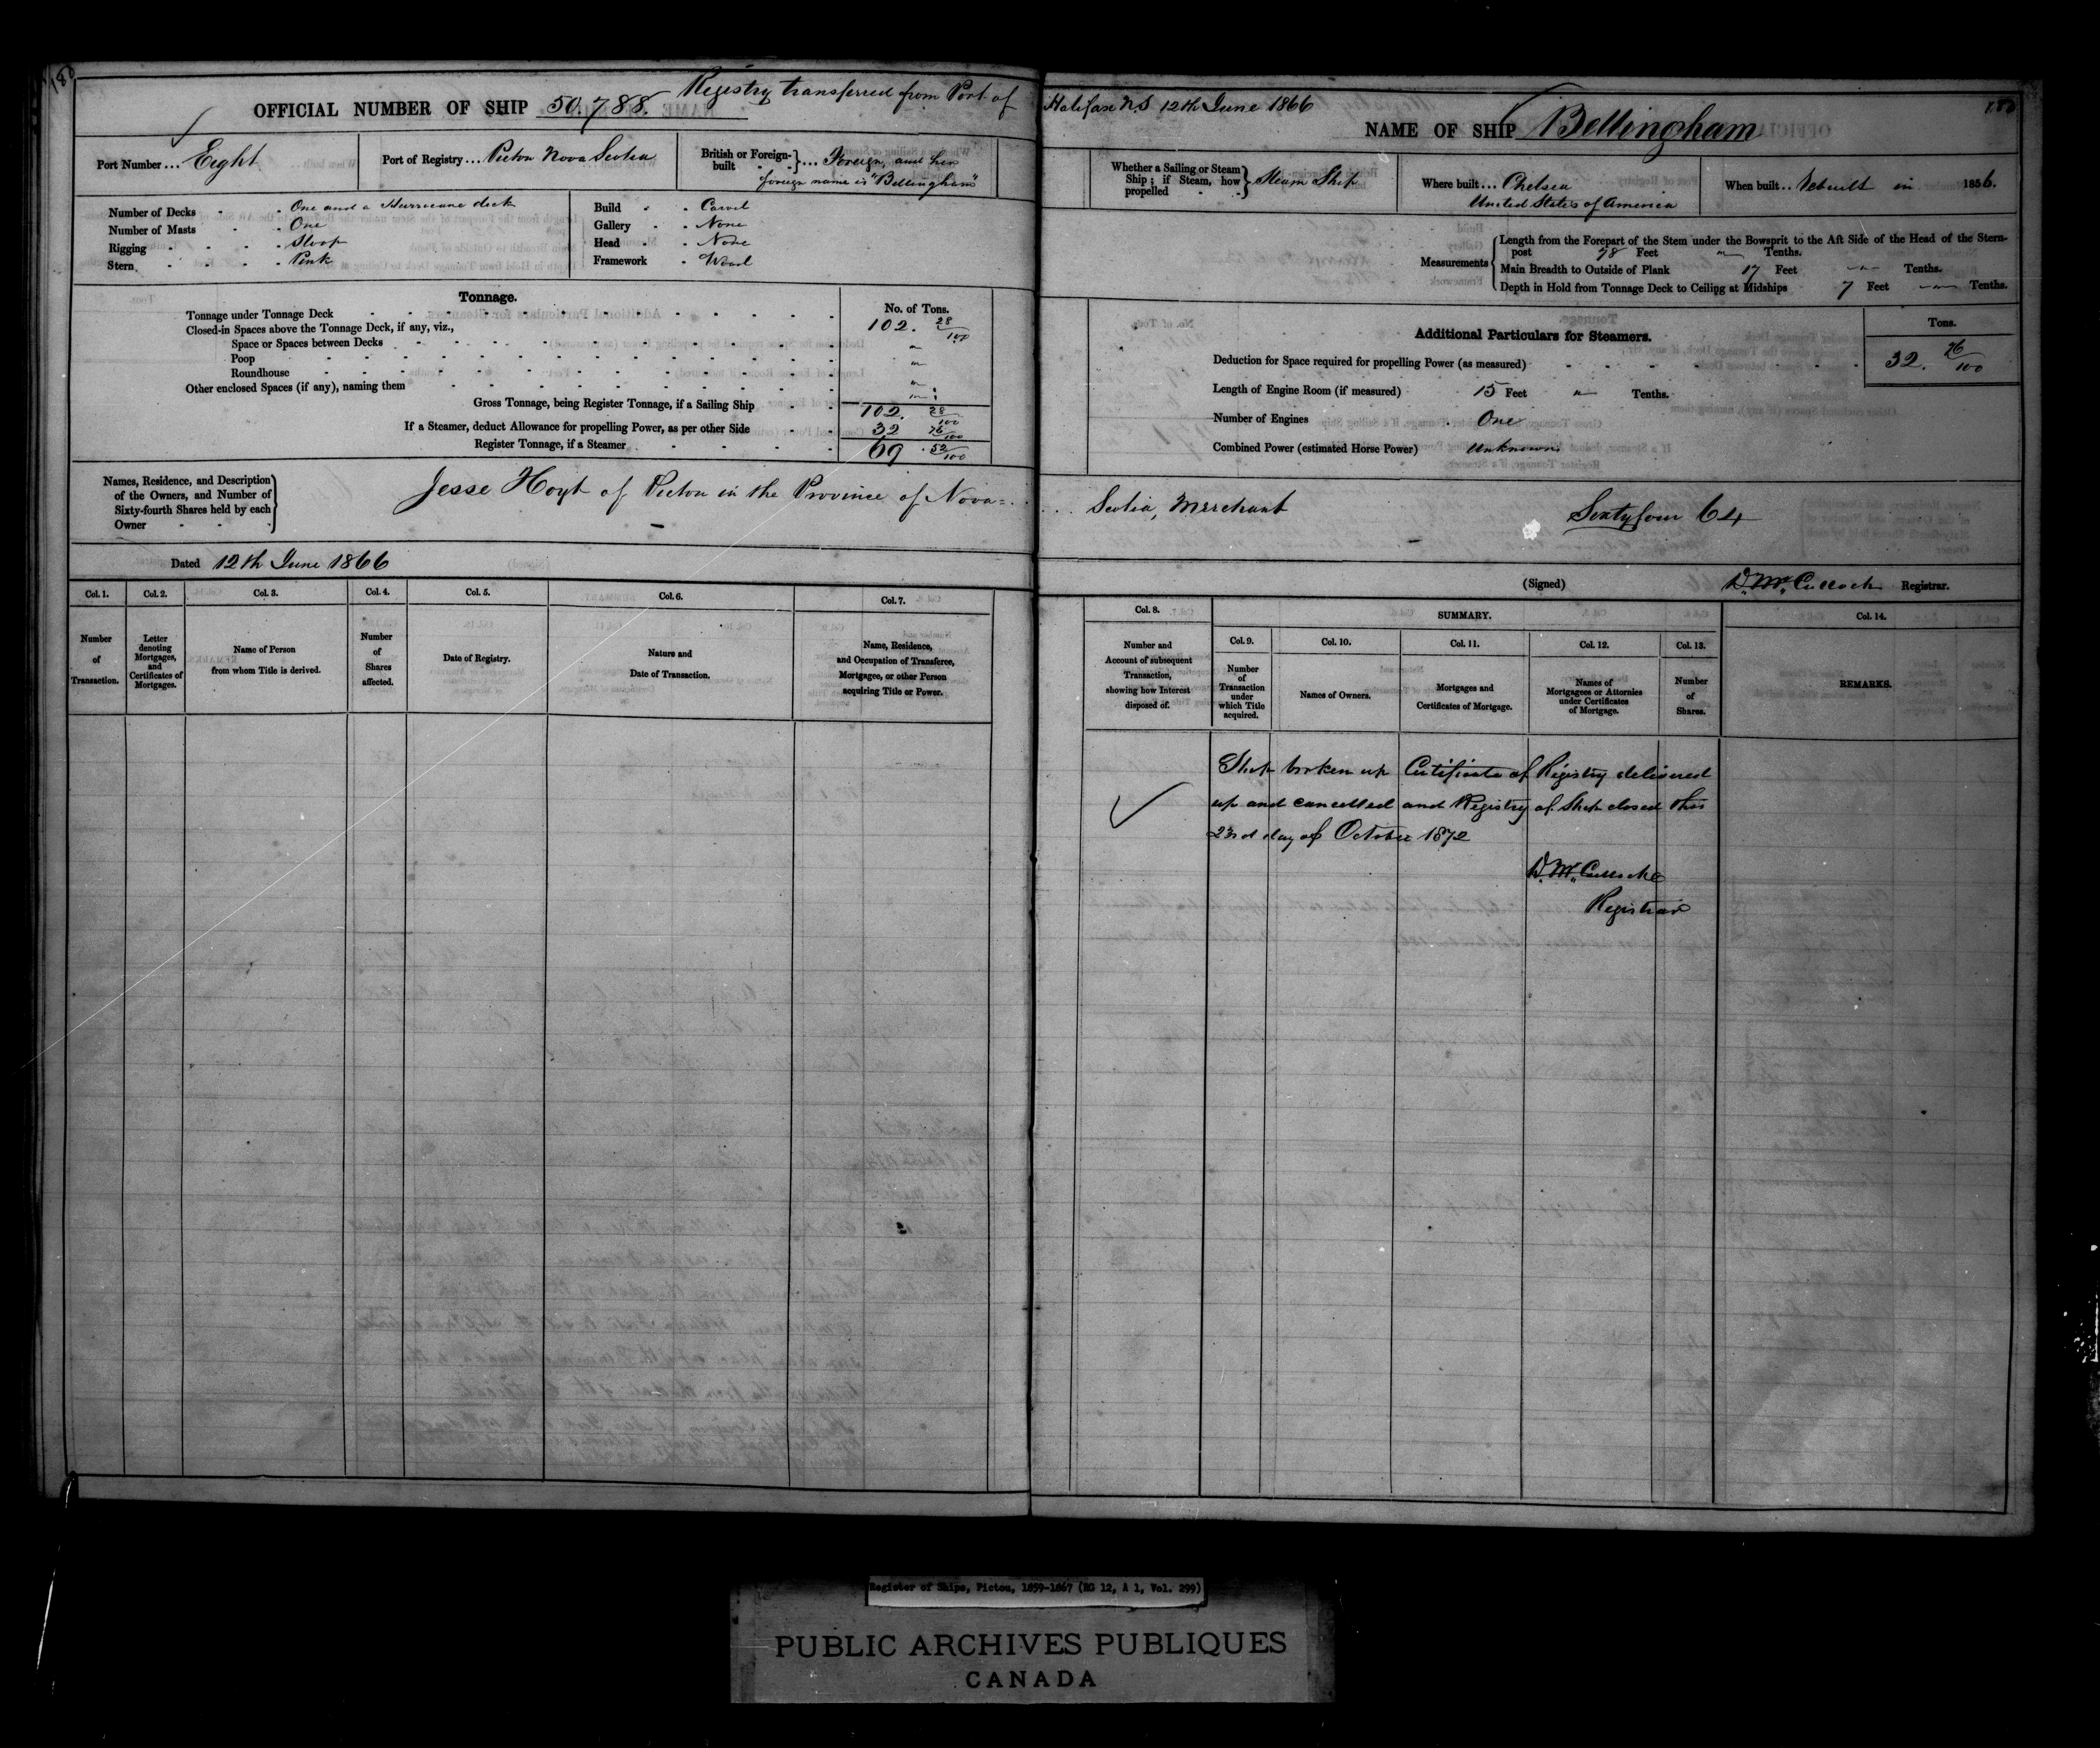 180
Registry transferred from Port of Halifax N.S 12th June 1866
OFFICIAL NUMBER OF SHIP 50.788.
NAME OF SHIP Bellingham
180
Port Number ... Eight
Port of Registry ... Pictou Nova Scotia
British or Foreign-built } ... Foreign, and her
foreign name is "Bellingham"
Whether a Sailing or Steam Ship; if Steam, how propelled } Steam Ship
Where built ... Chelsea
United States of America
When built .. Rebuilt in 1856.
Number of Decks One and a Hurricane deck
Number of Masts One
Rigging Sloop
Stern Pink
Build Carvel
Gallery None
Head None
Framework Wood
Measurements
Length from the Forepart of the Stem under the Bowsprit to the Aft Side of the Head of the Stern-
post 78 Feet " Tenths.
Main Breadth to Outside of Plank 17 Feet " Tenths.
Depth in Hold from Tonnage Deck to Ceiling at Midships 7 Feet " Tenths.
Tonnage.
No. of Tons.
Tonnage under Tonnage Deck 102. 28/100
Closed-in Spaces above the Tonnage Deck, if any, viz.,
Space or Spaces between Decks "
Poop "
Roundhouse "
Other enclosed Spaces (if any), naming them "
Gross Tonnage, being Register Tonnage, if a Sailing Ship 102. 28/100
If a Steamer, deduct Allowance for propelling Power, as per other Side 32 76/100
Register Tonnage, if a Steamer 69 . 52/100
Additional Particulars for Steamers.
Tons.
Deduction for Space required for propelling Power (as measured) 32. 76/100
Length of Engine Room (if measured) 15 Feet " Tenths.
Number of Engines One
Combined Power (estimated Horse Power) Unknown
Names, Residence, and Description
of the Owners, and Number of
Sixty-fourth Shares held by each
Owner
Jesse Hoyt of Pictou in the Province of Nova=
Scotia, Merchant Sixtyfour 64
Dated 12th June 1866
(Signed) D. McCulloch Registrar.
Col. 1.
Number
of
Transaction.
Col. 2.
Letter
denoting
Mortgages,
and
Certificates of
Mortgages.
Col. 3.
Name of Person
from whom Title is derived.
Col. 4.
Number
of
Shares
affected.
Col. 5.
Date of Registry.
Col. 6.
Nature and
Date of Transaction.
Col. 7.
Name, Residence,
and Occupation of Transferee,
Mortgagee, or other Person
acquiring Title or Power.
Col. 8.
Number and
Account of subsequent
Transaction,
showing how Interest
disposed of.
SUMMARY.
Col. 9.
Number
of
Transaction
under
which Title
acquired.
Col. 10.
Names of Owners.
Col. 11.
Mortgages and
Certificates of Mortgage.
Col. 12.
Names of
Mortgagees or Attornies
under Certificates
of Mortgage.
Col. 13.
Number
of
Shares.
Col. 14.
REMARKS.
Ship broken up Certificate of Registry delivered
up and cancelled and Registry of Ship closed this
23rd day of October 1872
D. McCulloch
Registrar
Register of Ships, Pictou, 1859-1867 (RG 12, A 1, Vol. 299)
PUBLIC ARCHIVES PUBLIQUES
CANADA